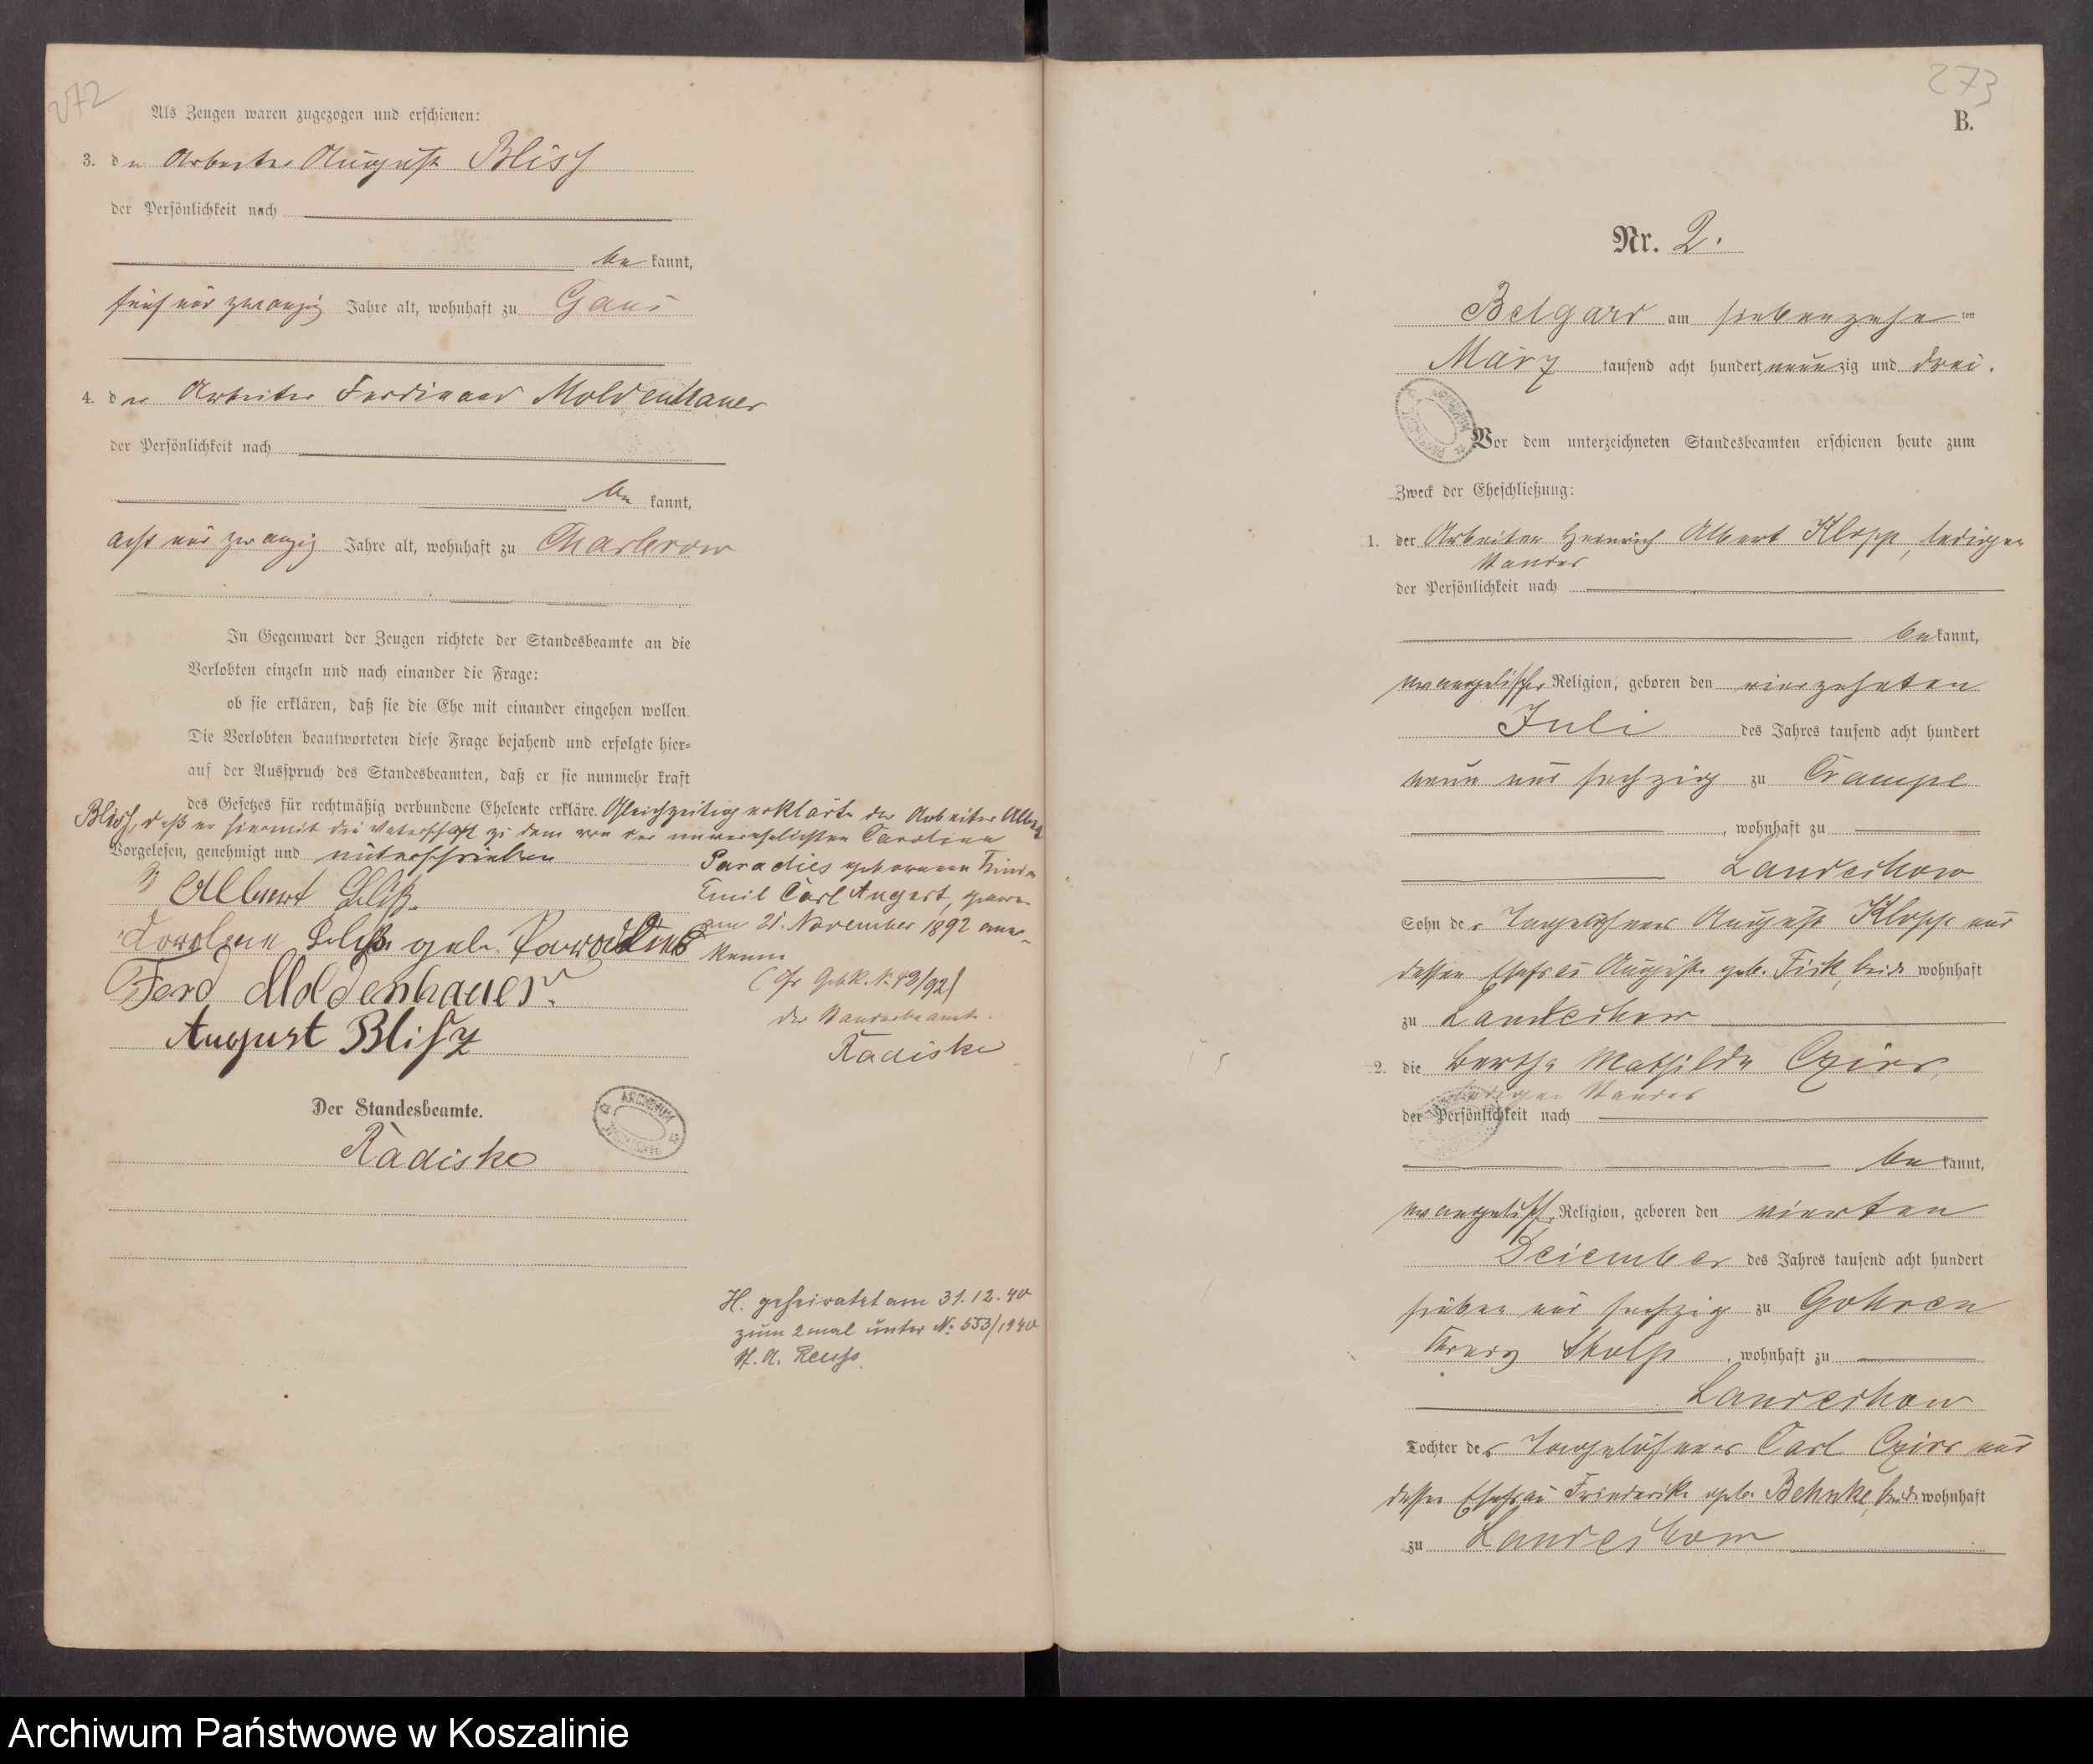 272
Als Zeugen waren zugezogen und erschienen:
3. der Arbeiter August Bliss
der Persönlichkeit nach
be kannt,
fünf und zwanzig Jahre alt, wohnhaft zu Gans
4. der Arbeiter Ferdinand Moldenhauer
der Persönlichkeit nach
be kannt,
acht und zwanzig Jahre alt, wohnhaft zu Charbrow
In Gegenwart der Zeugen richtete der Standesbeamte an die
Verlobten einzeln und nach einander die Frage:
ob sie erklären, daß sie die Ehe mit einander eingehen wollen.
Die Verlobten beantworteten diese Frage bejahend und erfolgte hier-
auf der Ausspruch des Standesbeamten, daß er sie nunmehr kraft
des Gesetzes für rechtmäßig verbundene Eheleute erkläre. Gleichzeitig erklärte der Arbeiter Albert
Bliss, daß er hiermit die Vaterschaft zu dem von der unverehelichten Caroline
Vorgelesen, genehmigt und unterschrieben
Paradies geborenen Kinde
Emil Carl August, geboren
am 21. November 1892 aner-
kenne
(cfr Geb.R. N. 43/92)
Der Standesbeamte.
Radiske
Albert Bliß.
Caroline Bliß. geb. Paradies
Ferd Moldenhauer.
August Bliß
Der Standesbeamte.
Radiske
ARCHIWUM
H. geheiratet am 31.12.40
zum 2 mal unter No. 553/1940
St. A.
273
B.
Nr. 2.
Belgard am siebenzehn ten
März tausend acht hundert neunzig und drei.
Vor dem unterzeichneten Standesbeamten erschienen heute zum
Zweck der Eheschließung:
1. der Arbeiter Heinrich Albert Klopp, ledigen
Standes
der Persönlichkeit nach
be kannt,
evangelischer Religion, geboren den vierzehnten
Juli des Jahres tausend acht hundert
neun und sechzig zu Crampe
, wohnhaft zu
Landechow
Sohn des Tagelöhners August Klopp und
dessen Ehefrau Auguste geb. Fick, beide wohnhaft
zu Landechow
2. die Bertha Mathilde Czirr,
ledigen Standes
der Persönlichkeit nach
be kannt,
evangelischer Religion, geboren den vierten
Dezember des Jahres tausend acht hundert
sieben und sechzig zu Gohren
Kreis Stolp , wohnhaft zu
Landechow
Tochter des Tagelöhners Carl Czirr und
dessen Ehefrau Friederike geb. Behnke, beide wohnhaft
zu Landechow
Archiwum Państwowe w Koszalinie